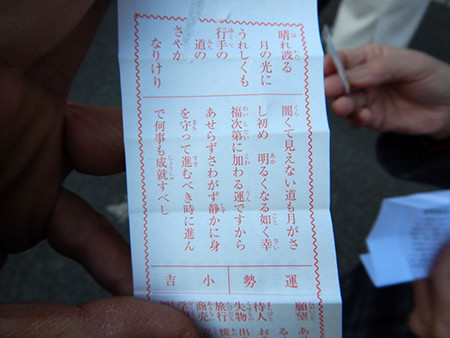 晴れ渡る
月の光に
うれしくも
行手の
道の
さやか
なりけり
闇くて見えない道も月がさ
し初め 明るくなる如く幸
福次第に加わる運ですから
あせらずさわがず静かに身
を守って進むべき時に進ん
で何事も成就すべし
運勢
小吉
願望
待人
失物
旅行
商売